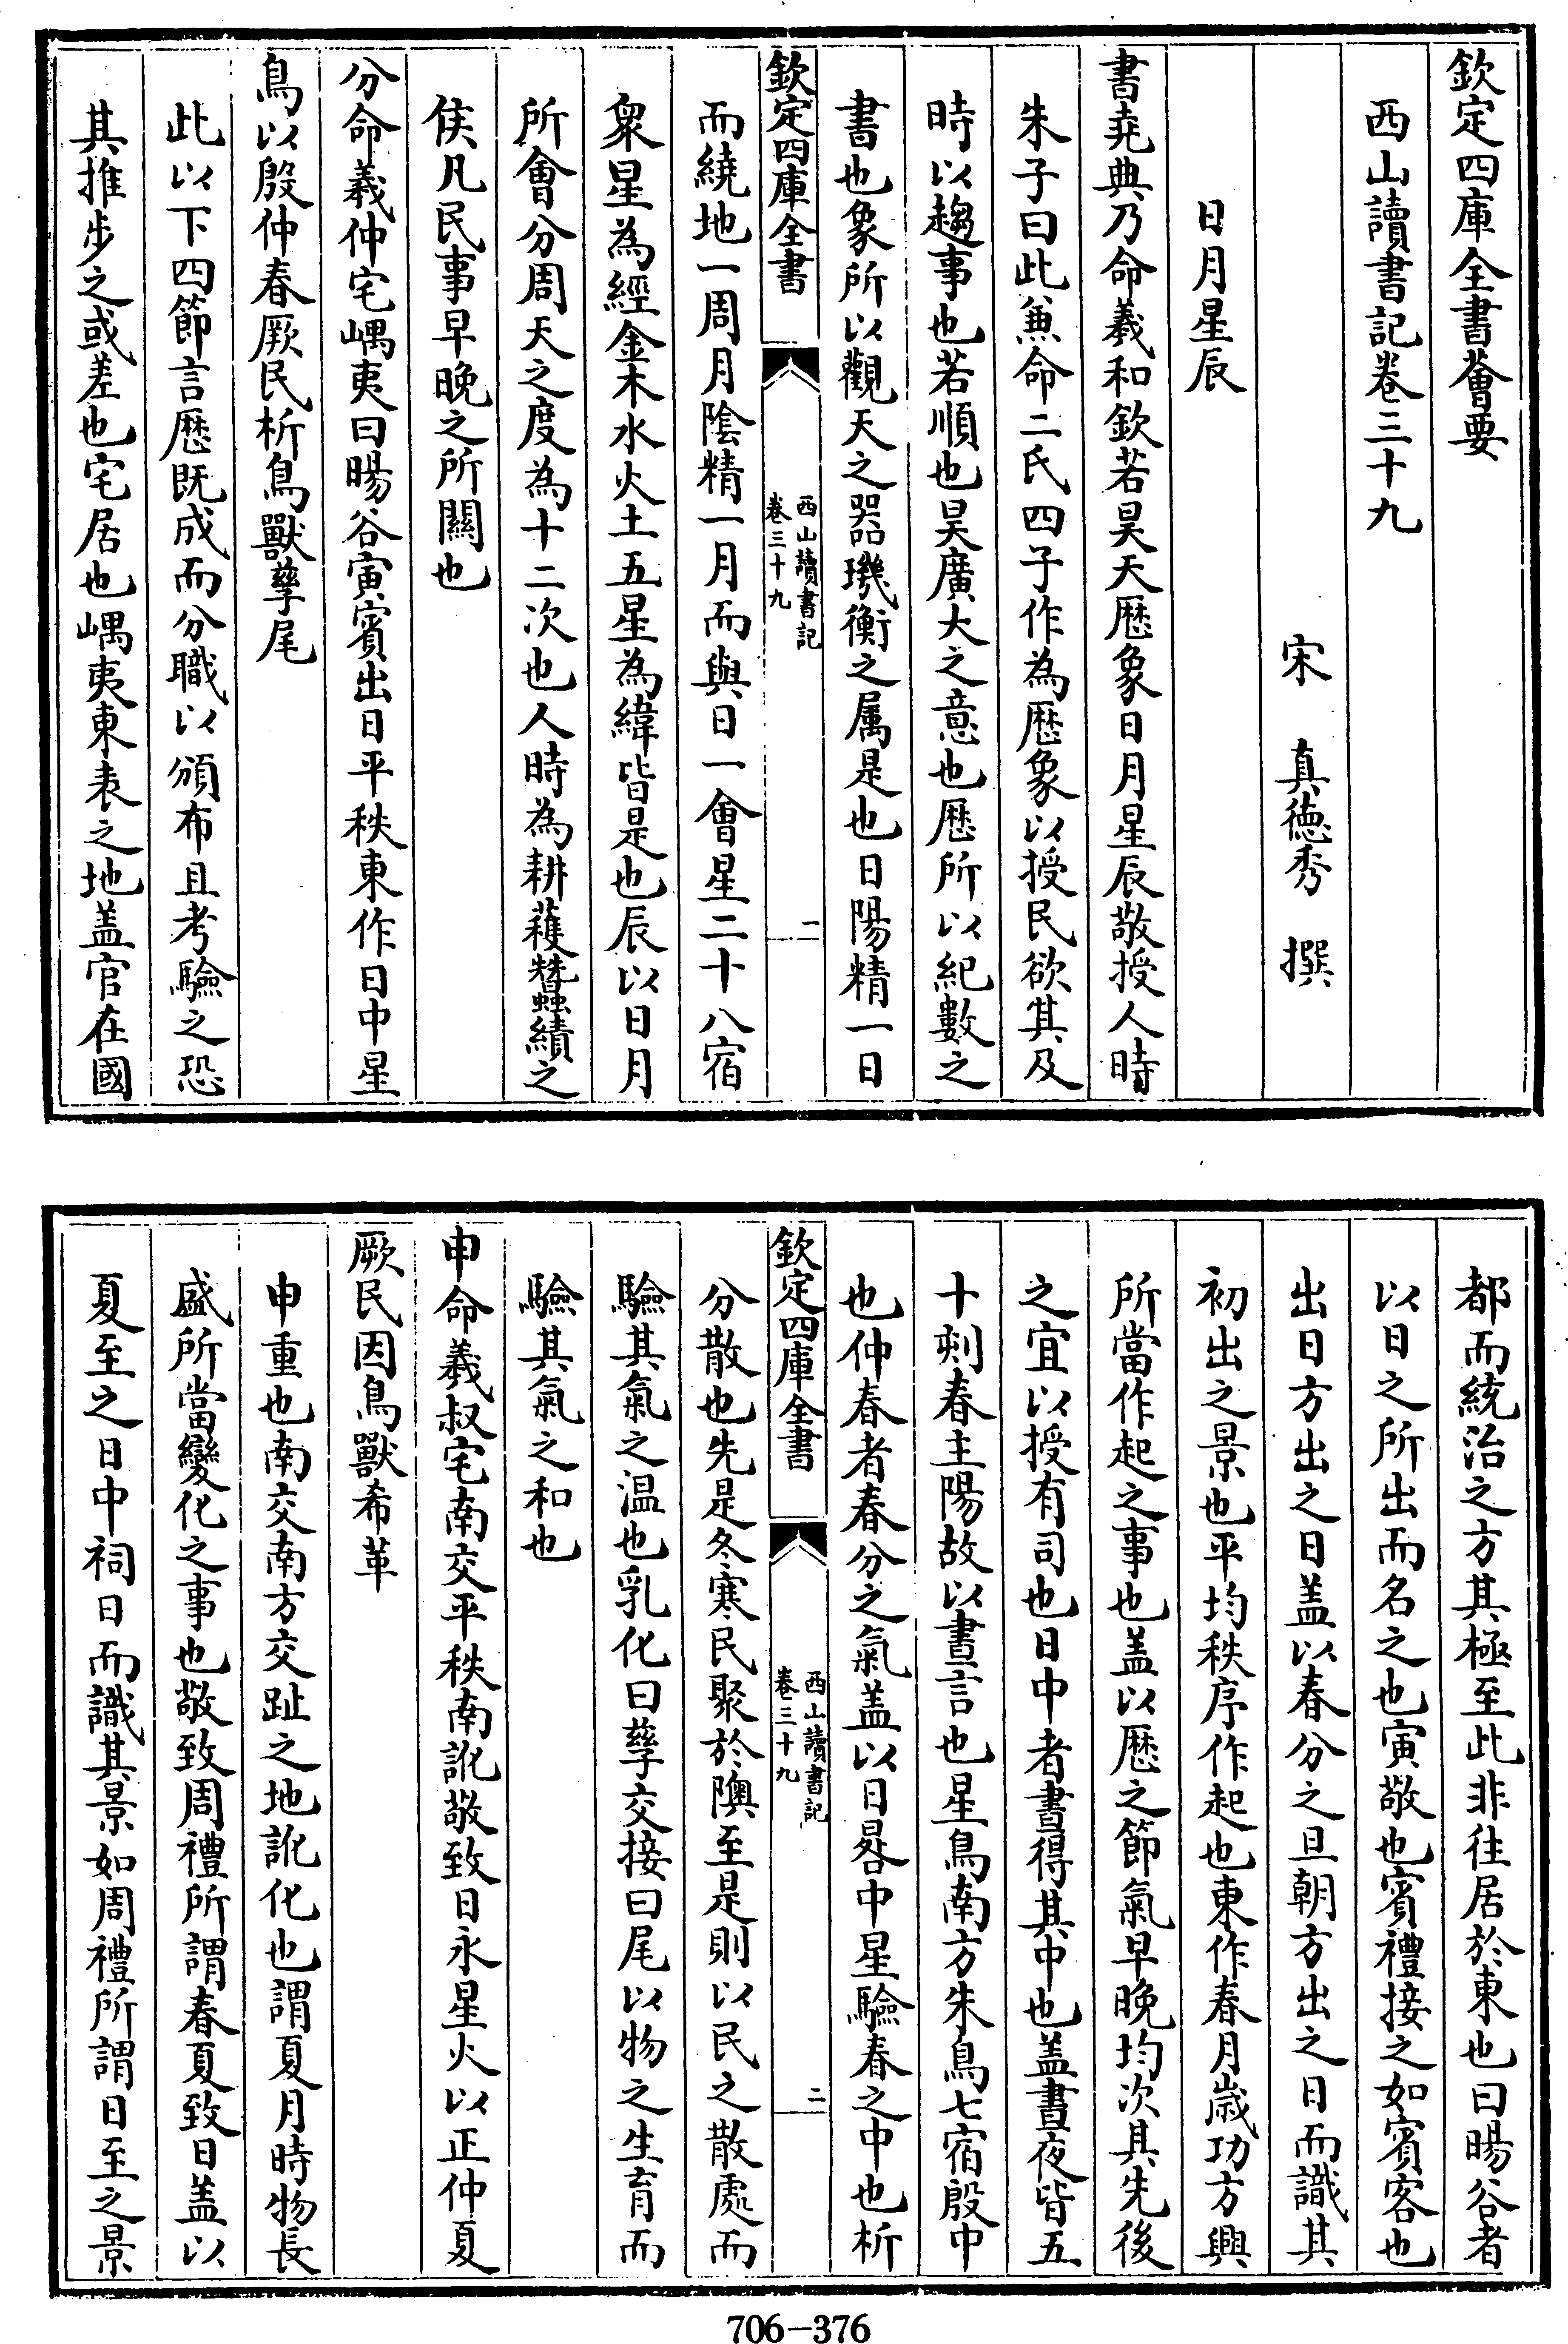 欽定四庫全書薈要
西山讀書記卷三十九
宋　真德秀　撰
日月星辰
書堯典乃命羲和欽若昊天歴象日月星辰敬授人時
朱子曰此兼命二氏四子作為歴象以授民欲其及
時以趨事也若順也昊廣大之意也歴所以紀數之
書也象所以觀天之器璣衡之属是也日陽精一日
欽定四庫全書
西山讀書記
卷三十九
一
而繞地一周月陰精一月而與日一會星二十八宿
衆星為經金木水火土五星為緯皆是也辰以日月
所會分周天之度為十二次也人時為耕穫蠶績之
候凡民事早晚之所關也
分命羲仲宅嵎夷曰暘谷寅賓出日平秩東作日中星
鳥以殷仲春厥民析鳥獸孳尾
此以下四節言歴既成而分職以頒布且考驗之恐
其推步之或差也宅居也嵎夷東表之地盖官在國
都而統治之方其極至此非往居於東也曰暘谷者
以日之所出而名之也寅敬也賓禮接之如賓客也
出日方出之日盖以春分之旦朝方出之日而識其
初出之景也平均秩序作起也東作春月歳功方興
所當作起之事也盖以歴之節氣早晚均次其先後
之宜以授有司也日中者晝得其中也盖晝夜皆五
十刻春主陽故以晝言也星鳥南方朱鳥七宿殷中
也仲春者春分之氣盖以日晷中星驗春之中也析
欽定四庫全書
西山讀書記
卷三十九
二
分散也先是冬寒民聚於隩至是則以民之散處而
驗其氣之温也乳化曰孳交接曰尾以物之生育而
驗其氣之和也
申命羲叔宅南交平秩南訛敬致日永星火以正仲夏
厥民因鳥獸希革
申重也南交南方交趾之地訛化也謂夏月時物長
盛所當變化之事也敬致周禮所謂春夏致日盖以
夏至之日中祠日而識其景如周禮所謂日至之景
706-376